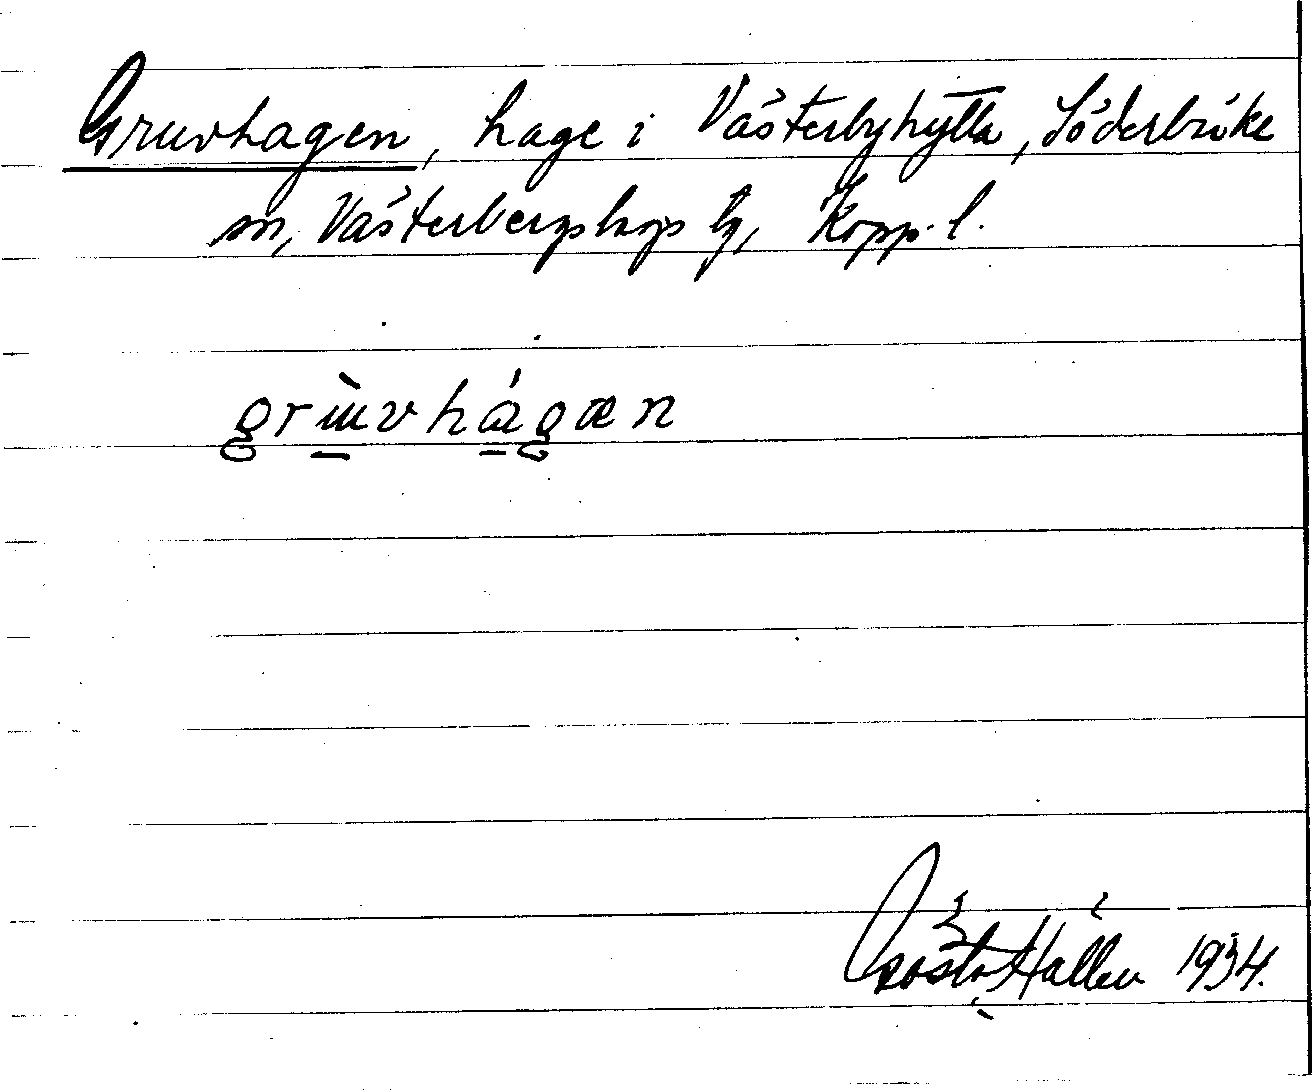 Gruvhagen, hage i Västerbyhytta, Söderbärke
sn, Västerbergslags tg, Kopp. l.
grùvhágæn
Gösta Hallen 1934.